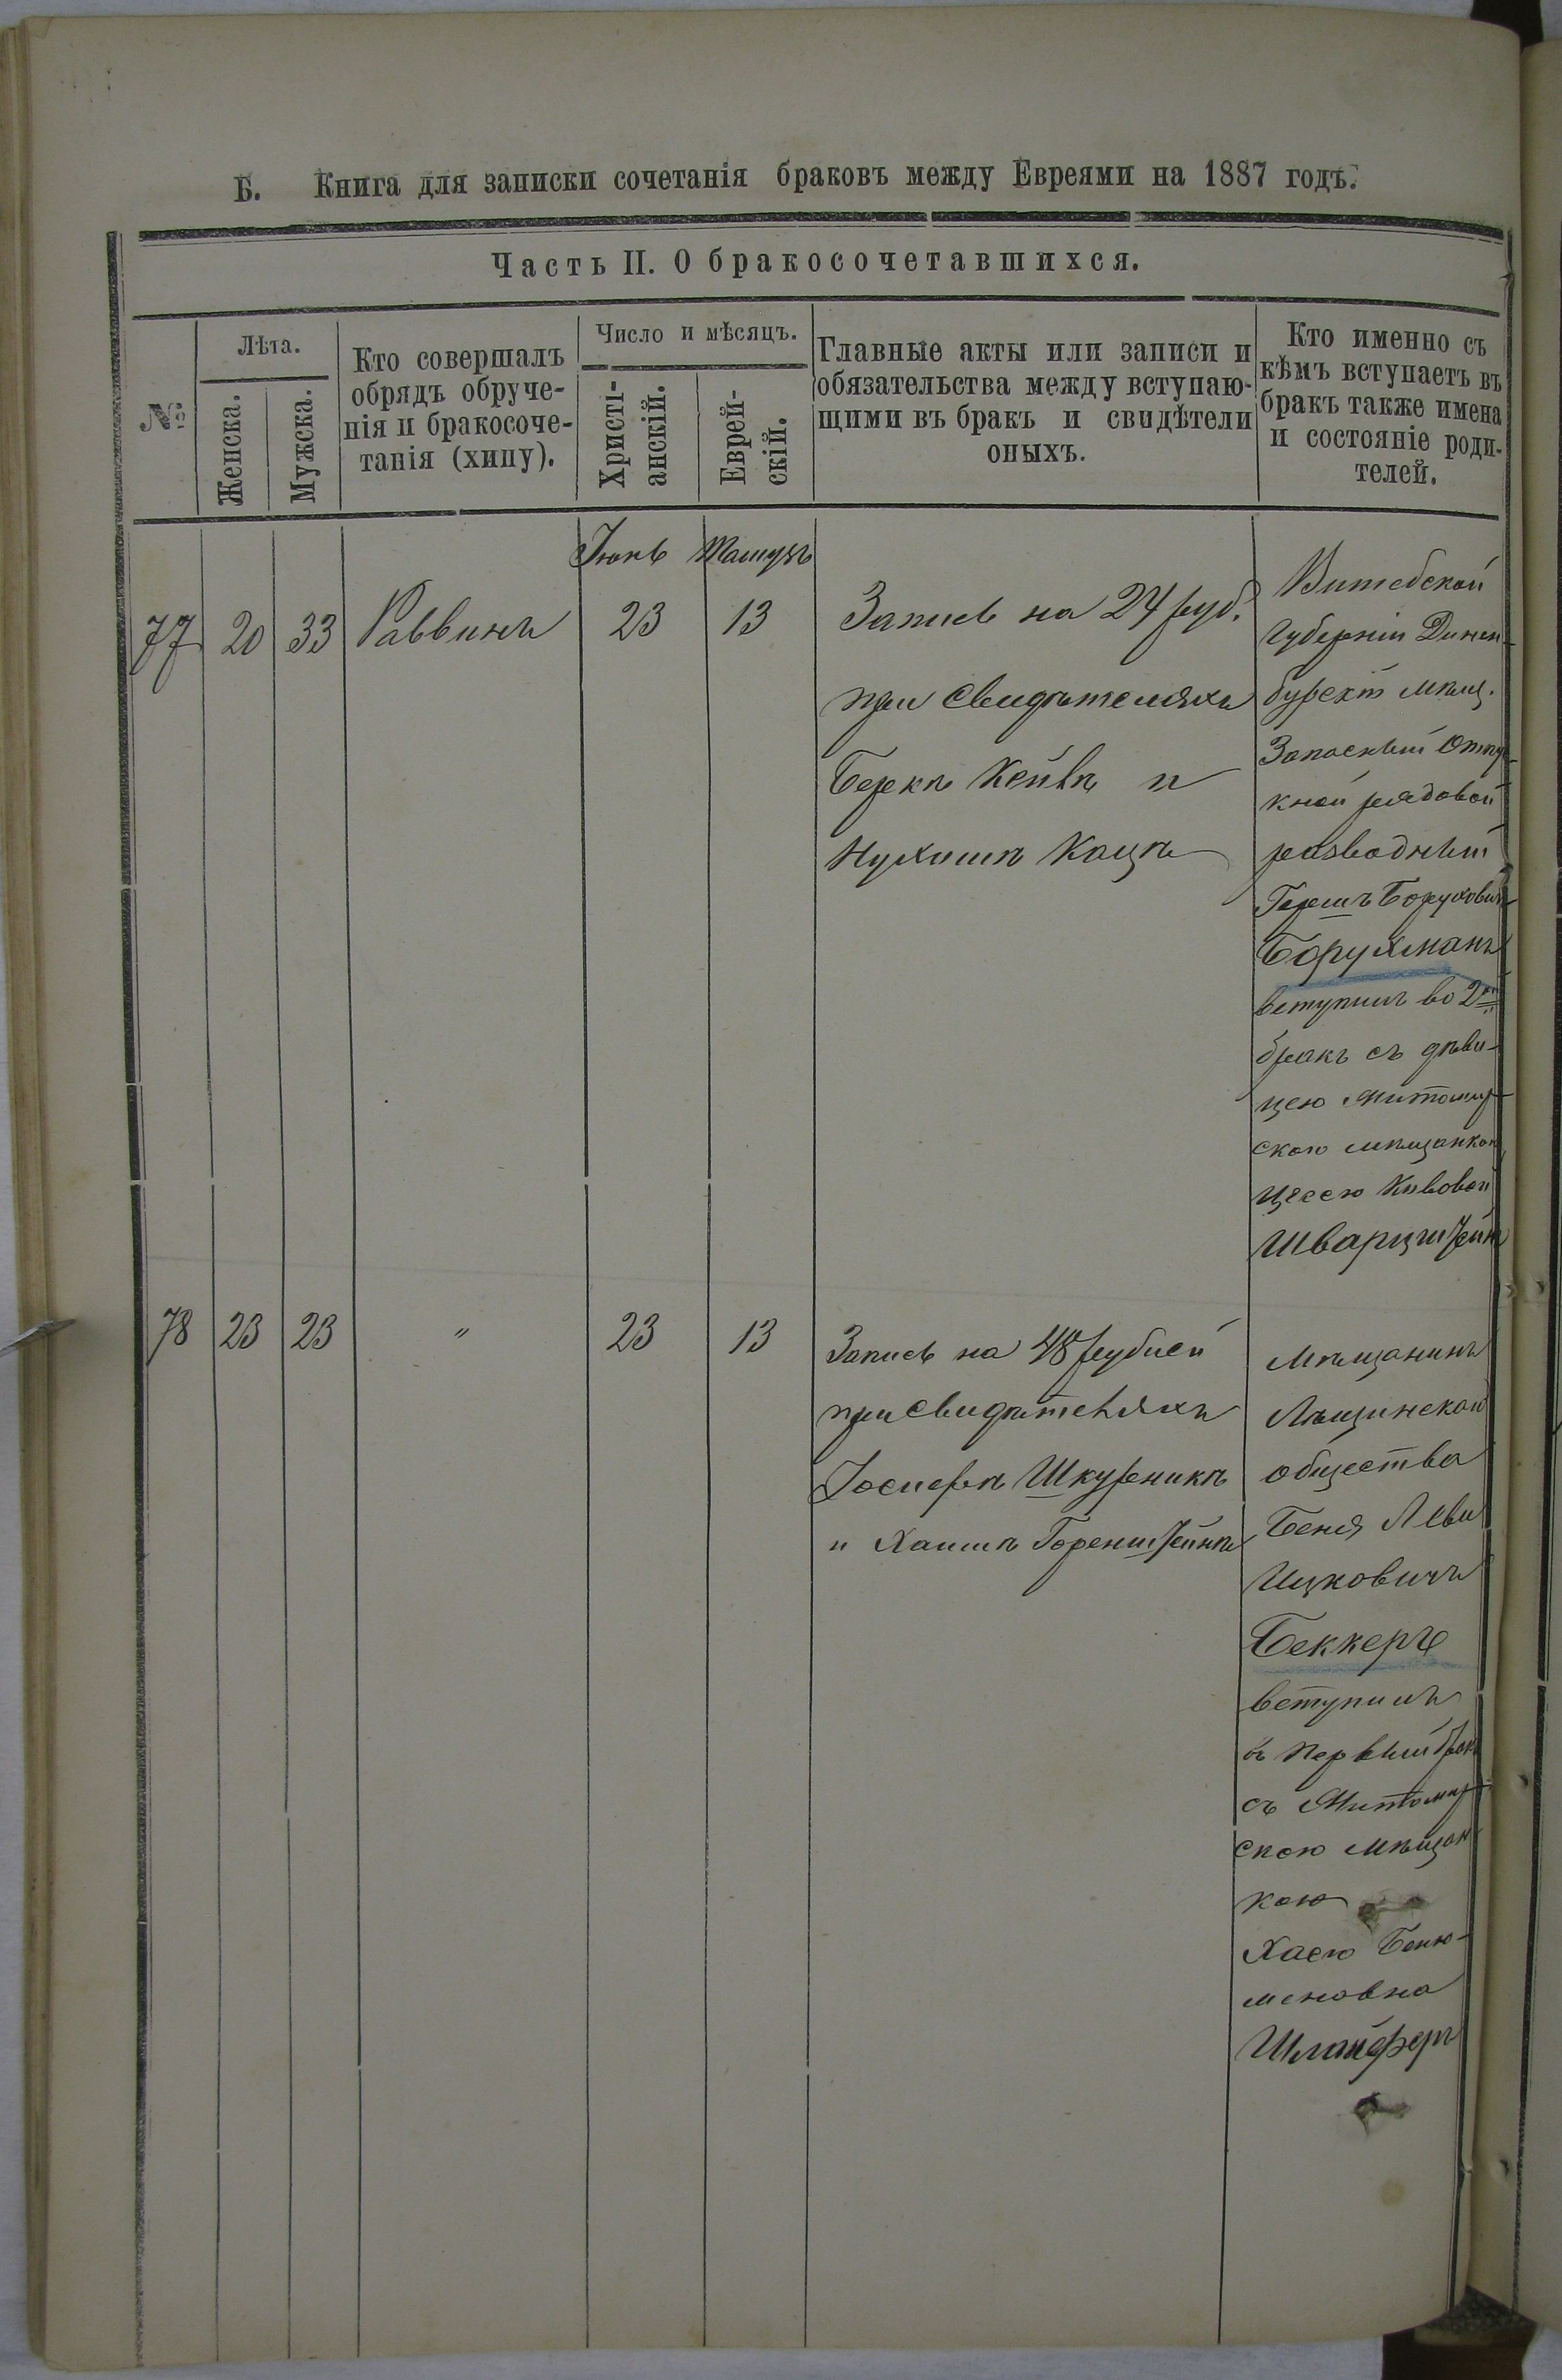 Б. Книга для записки сочетанія браковъ между Евреями на 1887 годъ.
Часть II. О бракосочетавшихся.
№
Лѣта.
Женска.
Мужска.
Кто совершалъ
обрядъ обруче-
нія и бракосоче-
танія (хипу).
Число и мѣсяцъ.
Христі-
анскій.
Еврей-
скій.
Главные акты или записи и
обязательства между вступаю-
щими въ бракъ и свидѣтели
оныхъ.
Кто именно съ
кѣмъ вступаетъ въ
бракъ также имена
и состояніе роди-
телей.
Іюнь Тамузъ
77 20 33 Раввинъ 23 13
Запись на 24 руб.
при свидѣтеляхъ
Беркѣ Кейвѣ и
Нухимѣ Кацѣ
Витебской
Губерніи Динен-
бургскій мѣщ.
Запасный Отпу-
кной рядовой
разводный
Гершъ Боруховичъ
Борухманъ
вступилъ во 2й
бракъ съ дѣви-
цею Житомир-
скою мѣщанкою
Цесею Кивовой
Шварцштейнъ
78 23 23 " 23 13
Запись на 48 рублей
при свидѣтеляхъ
Іосифѣ Шкурникѣ
и Хаимѣ Горенштейнѣ
Мѣщанинъ
Лѣщинской
общества
Беня Леви
Ицковичъ
Беккеръ
вступилъ
въ первый бракъ
съ Житомир-
скою мѣщан
кою
Хаею Беню-
меновна
Шлайферъ